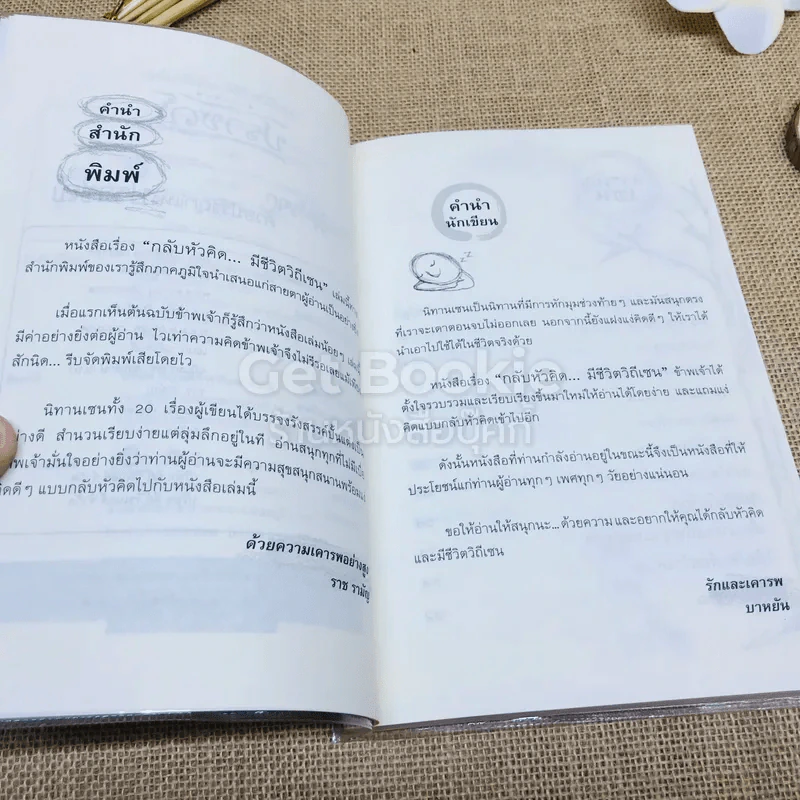 คำนำ
สำนัก
พิมพ์
หนังสือเรื่อง “กลับหัวคิด... มีชีวิตวิถีเซน” เล่มนี้ทาง
สำนักพิมพ์ของเรารู้สึกภาคภูมิใจนำเสนอแก่สายตาผู้อ่านเป็นอย่างยิ่ง
เมื่อแรกเห็นต้นฉบับข้าพเจ้าก็รู้สึกว่าหนังสือเล่มน้อยๆ เล่มนี้
มีค่าอย่างยิ่งต่อผู้อ่าน ไวเท่าความคิดข้าพเจ้าจึงไม่รีรอเลยแม้เพียง
สักนิด... รีบจัดพิมพ์เสียโดยไว
นิทานเซนทั้ง 20 เรื่องผู้เขียนได้บรรจงรังสรรค์ขึ้นแต่งเป็น
อย่างดี สำนวนเรียบง่ายแต่ลุ่มลึกอยู่ในที อ่านสนุกทุกที่ไม่มี
พเจ้ามั่นใจอย่างยิ่งว่าท่านผู้อ่านจะมีความสุขสนุกสนานพร้อม
คิดดีๆ แบบกลับหัวคิดไปกับหนังสือเล่มนี้
ด้วยความเคารพอย่างสูง
ราช รามัญ
คำนำ
นักเขียน
z z
นิทานเซนเป็นนิทานที่มีการหักมุมช่วงท้ายๆ และมันสนุกตรง
ที่เราจะเดาตอนจบไม่ออกเลย นอกจากนี้ยังแฝงแง่คิดดีๆ ให้เราได้
นำเอาไปใช้ได้ในชีวิตจริงด้วย
หนังสือเรื่อง “กลับหัวคิด... มีชีวิตวิถีเซน” ข้าพเจ้าได้
ตั้งใจรวบรวมและเรียบเรียงขึ้นมาใหม่ให้อ่านได้โดยง่าย และแถมแง่
คิดแบบกลับหัวคิดเข้าไปอีก
ดังนั้นหนังสือที่ท่านกำลังอ่านอยู่ในขณะนี้จึงเป็นหนังสือที่ให้
ประโยชน์แก่ท่านผู้อ่านทุกๆ เพศทุกๆ วัยอย่างแน่นอน
ขอให้อ่านให้สนุกนะ... ด้วยความ และอยากให้คุณได้กลับหัวคิด
และมีชีวิตวิถีเซน
รักและเคารพ
บาหยัน
Get Bookie
ร้านหนังสือบุ๊คกี้